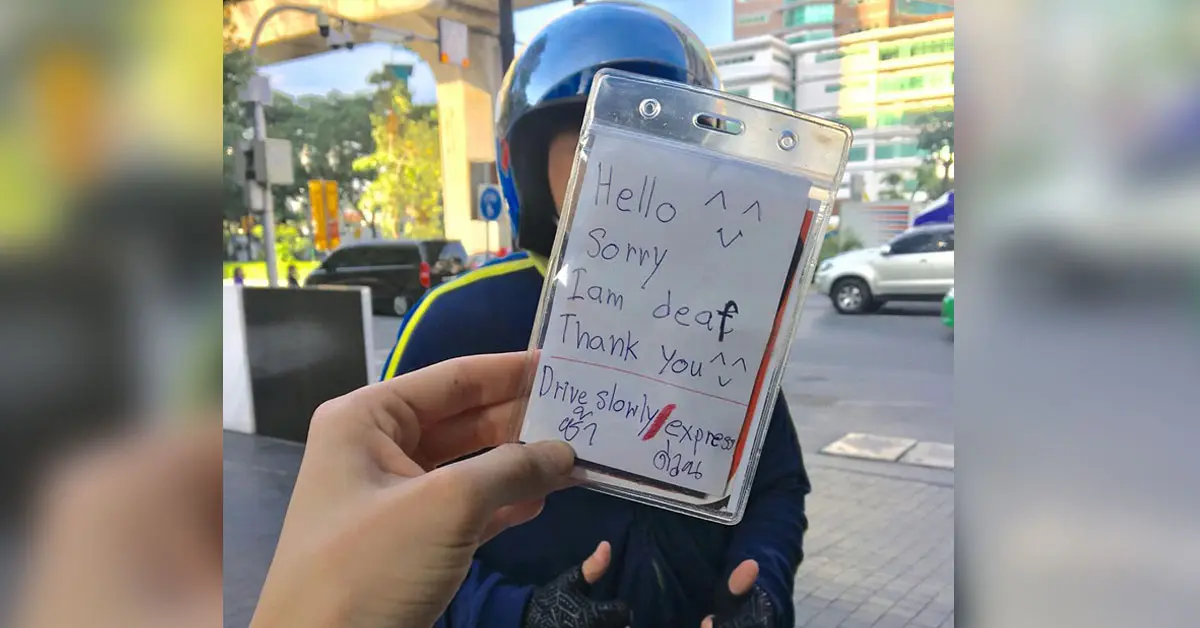 Hello ^ ^
Sorry
I am deaf
Thank you ^ ^
Drive slowly/express
ช้า ด่วน